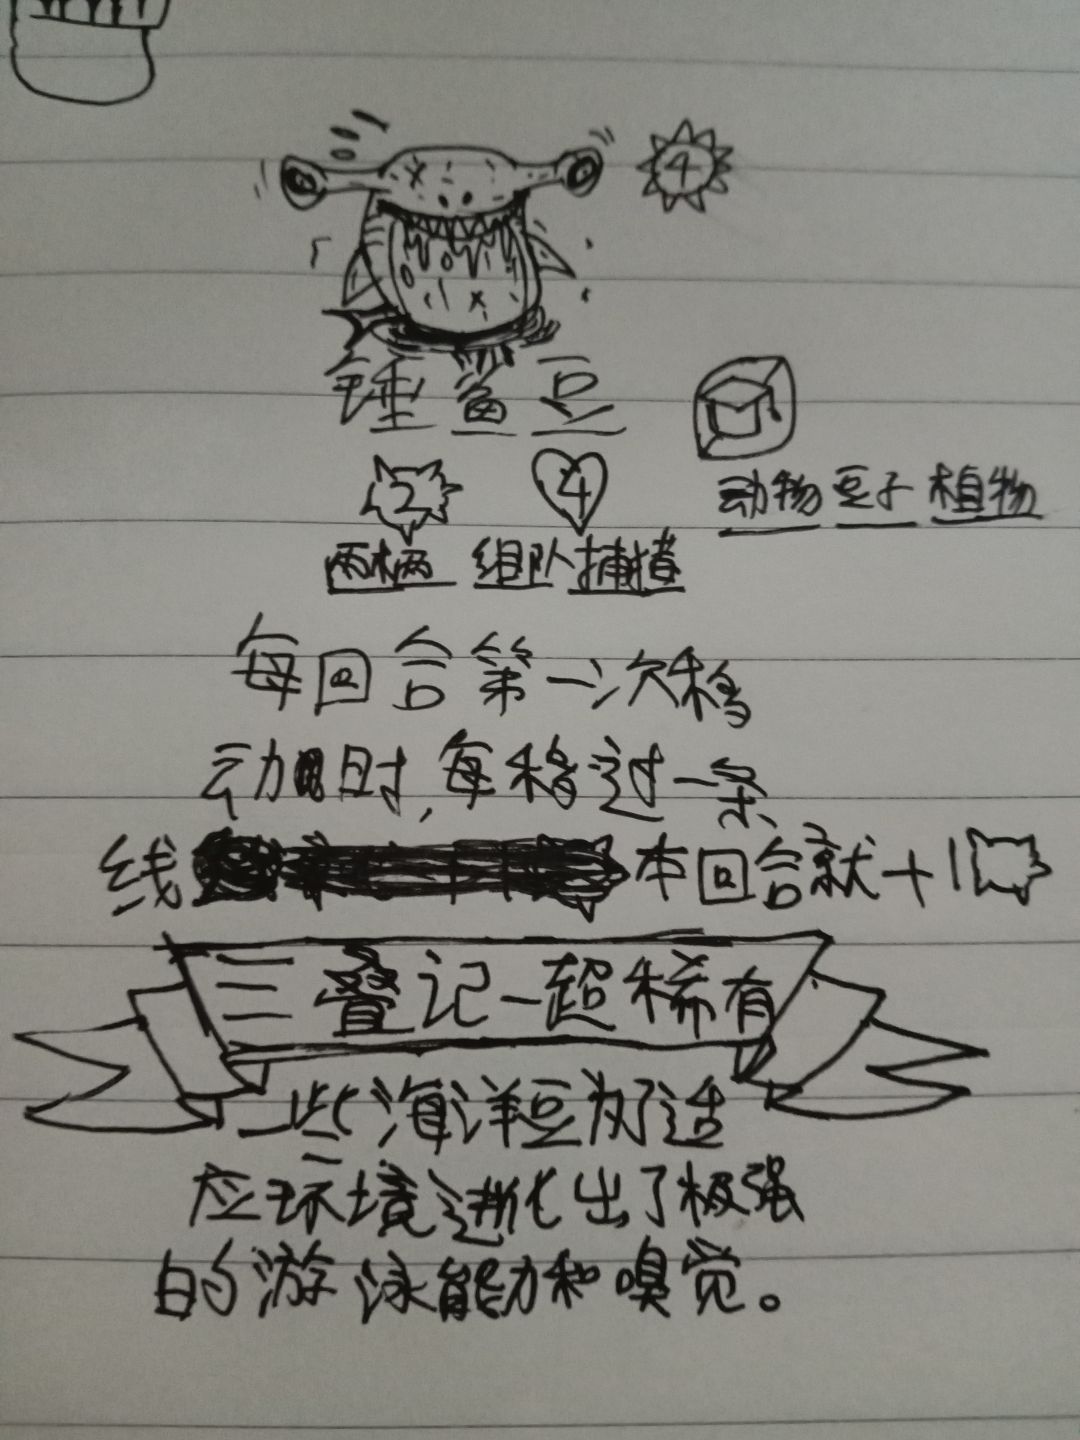 4
锤鱼豆
动物 豆子 植物
2 4
两栖 组队捕猎
每回合第一次移
动时,每移过一条
线本回合就+1
三叠记-超稀有
一些海洋豆为了适
应环境进化出了极强
的游泳能力和嗅觉。